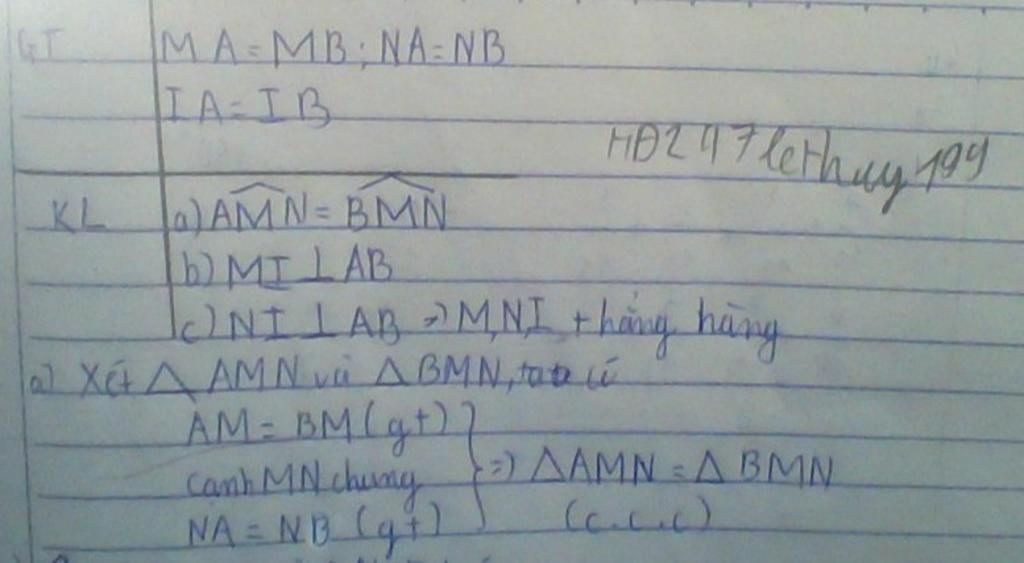 GT MA = MB ; NA = NB
IA = IB
HD247lethuy199
KL a) \widehat{AMN} = \widehat{BMN}
b) MI ⊥ AB
c) NI ⊥ AB => M,N,I thẳng hàng
a) Xét △ AMN và △ BMN, ta có
AM = BM (gt)
cạnh MN chung => △AMN = △BMN
NA = NB (gt) (c.c.c)